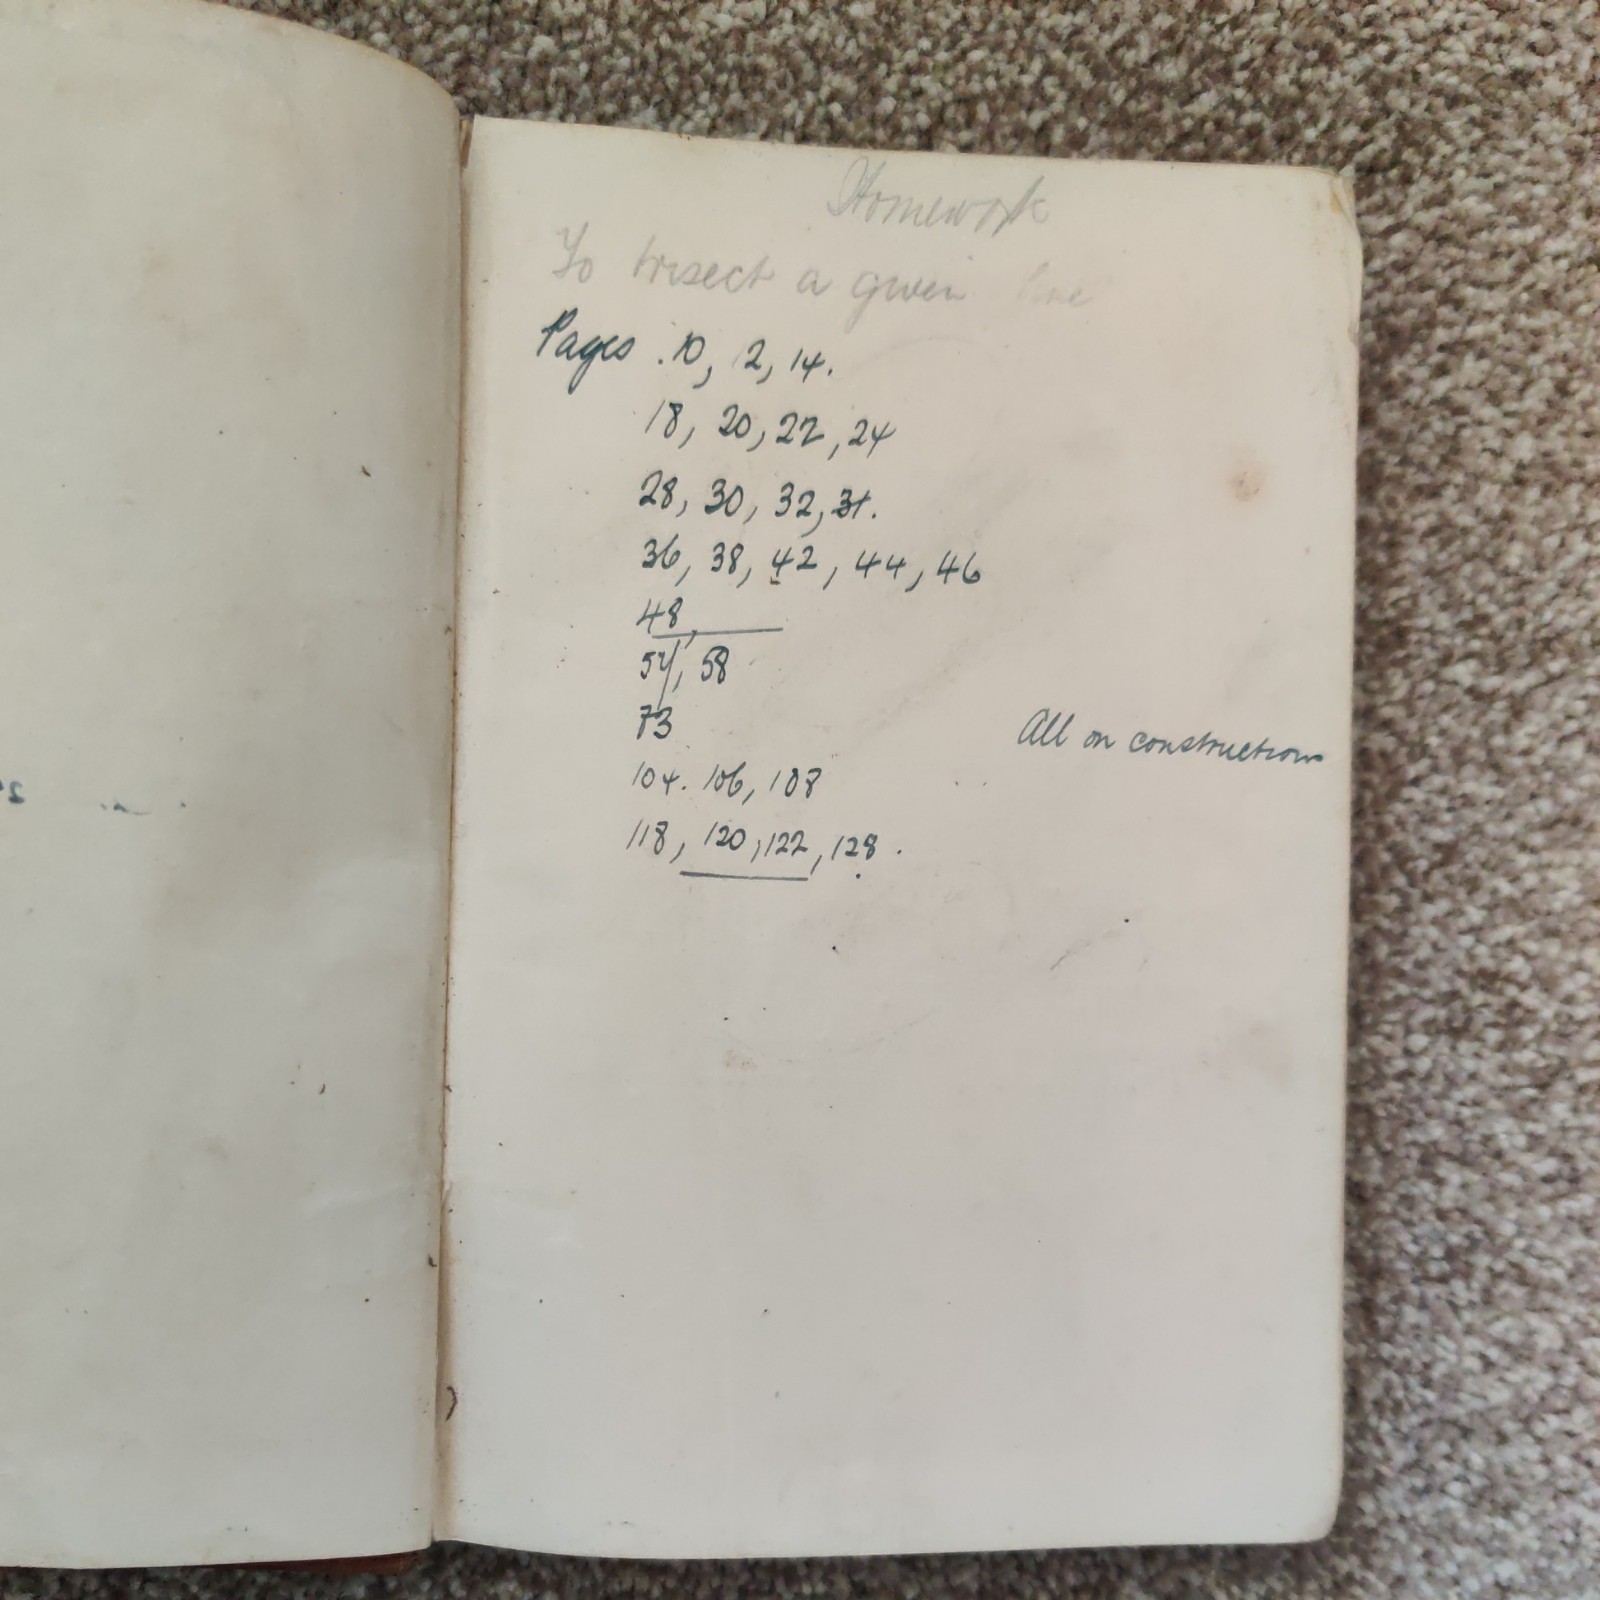 Homework
To trisect a given line
Pages .10, 12, 14.
18, 20, 22, 24
28, 30, 32, 31.
36, 38, 42, 44, 46
48,
54, 58
73
All on constructions
104. 106, 108
118, 120, 122, 128.